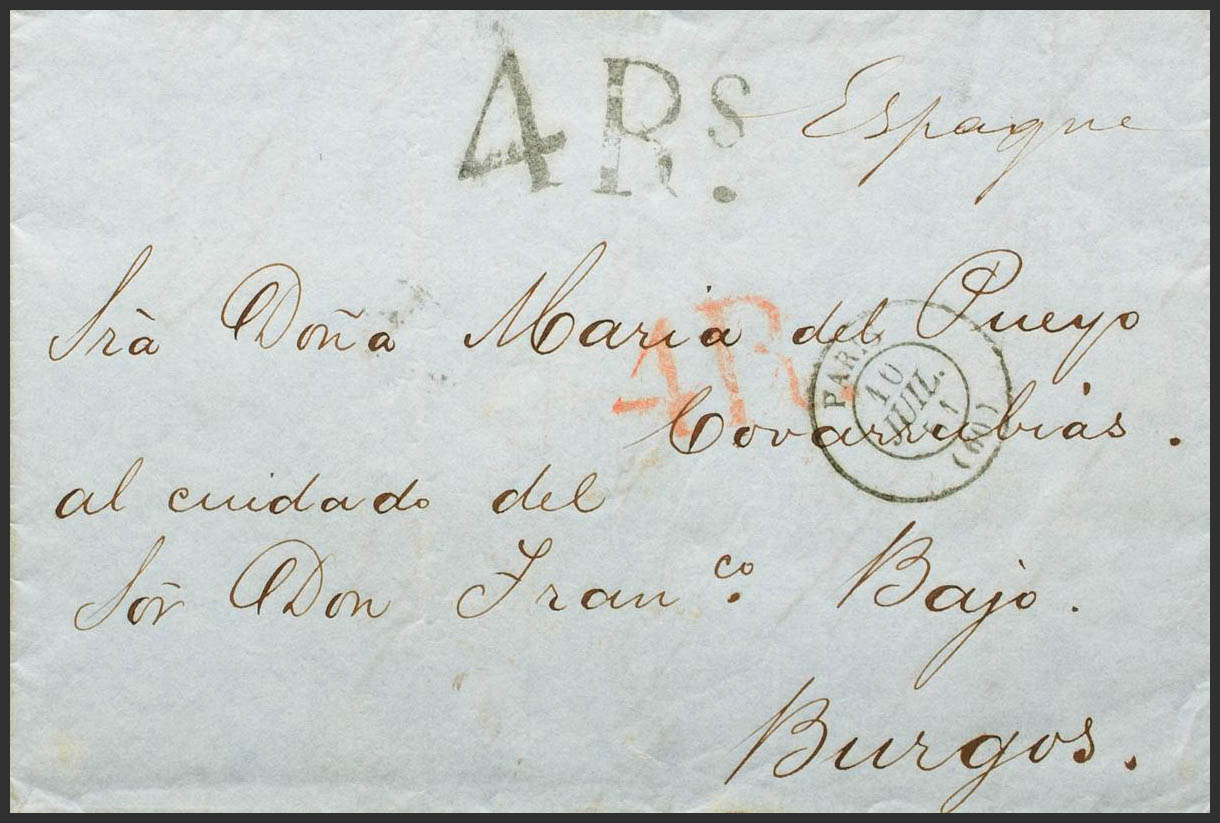 4 Rs.
Espagne
Srà Doña Maria del Pueyo
4R
Covarrubias.
PARIS
10
JUIL.
(60)
al cuidado del
Sor̃ Don Franco. Bajo.
Burgos.